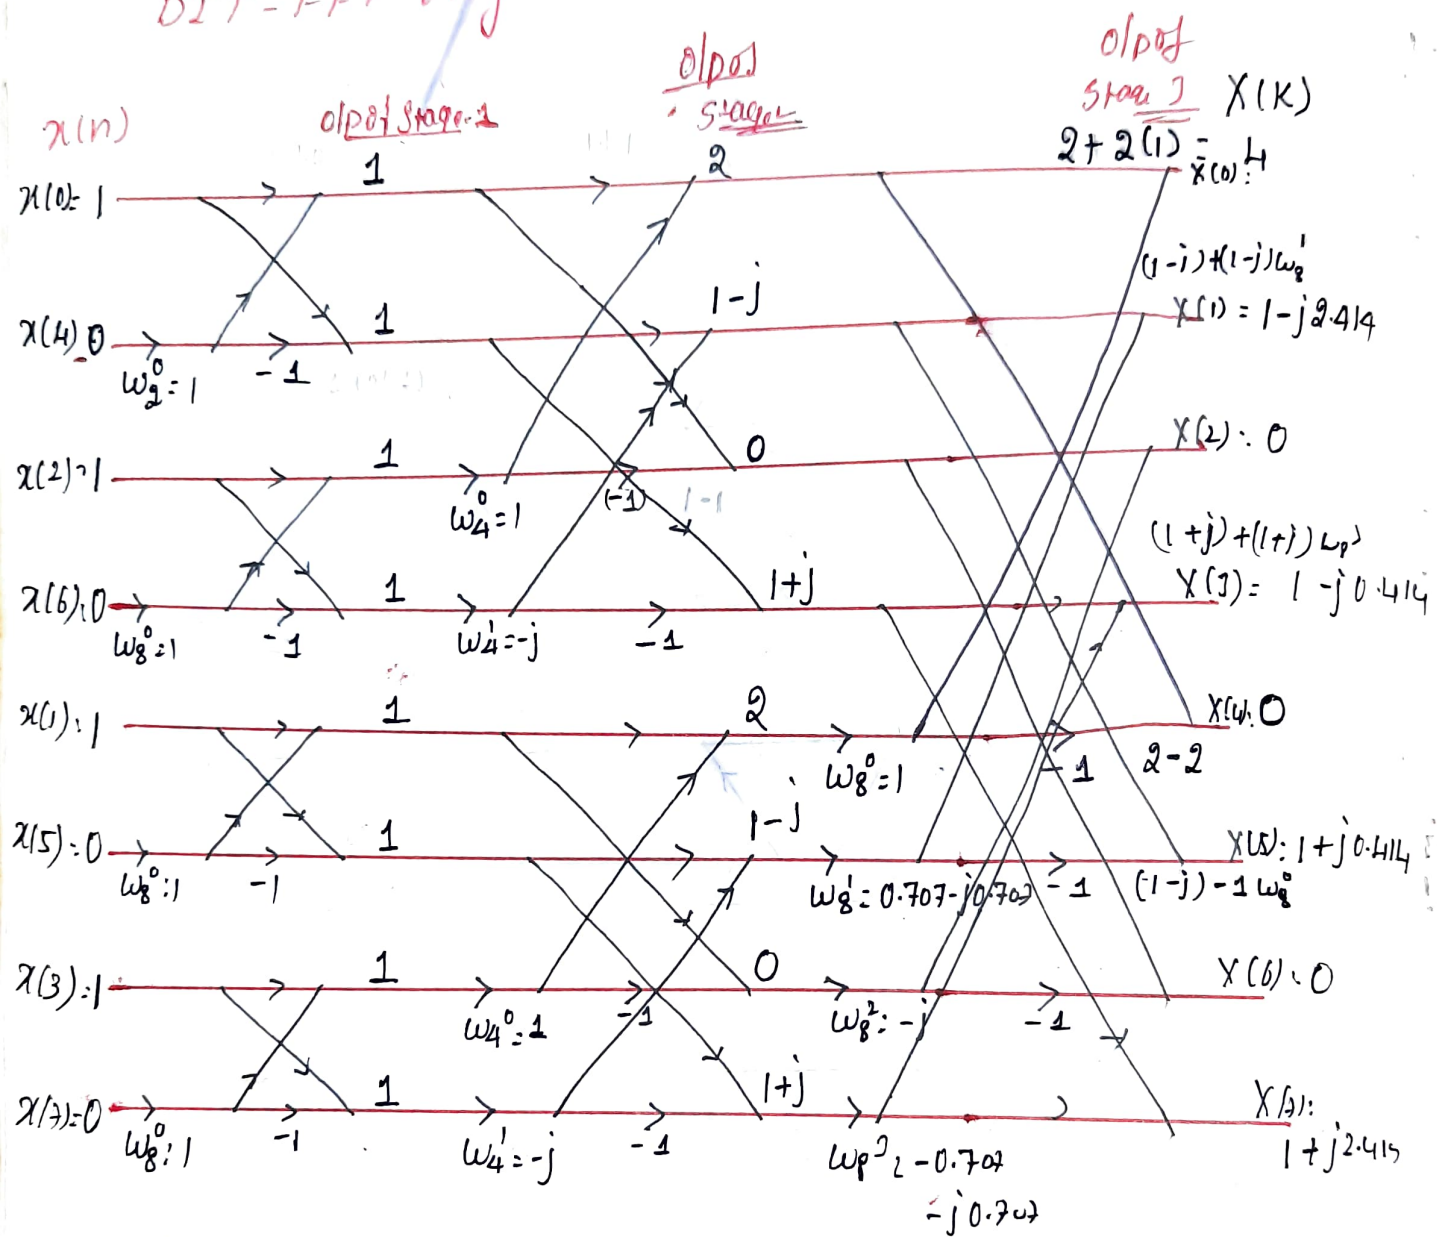 DIT-FFT
x(n)
o/p of stage-1
o/p of
stage 2
o/p of
stage 3
X(K)
x(0)=1
1
2
2+2(1) = 4
X(0):
(1-j)+(1-j)W₈¹
x(4) 0
W₂⁰=1
-1
1
1-j
X(1) = 1-j2.414
x(2)=1
1
W₄⁰=1
(-1)
1-1
0
X(2): 0
x(6):0
W₈⁰=1
-1
1
W₄¹=-j
-1
1+j
(1+j)+(1+j)W₈³
X(3)= 1-j0.414
x(1):1
1
2
W₈⁰=1
-1
2-2
X(4): 0
x(5):0
W₈⁰:1
-1
1
1-j
W₈¹=0.707-j0.707
-1
(1-j)-1W₈⁰
X(5): 1+j0.414
x(3):1
1
W₄⁰=1
-1
0
W₈²:-j
-1
X(6): 0
x(7)=0
W₈⁰:1
-1
1
W₄¹=-j
-1
1+j
W₈³=-0.707
-j0.707
X(7):
1+j2.414